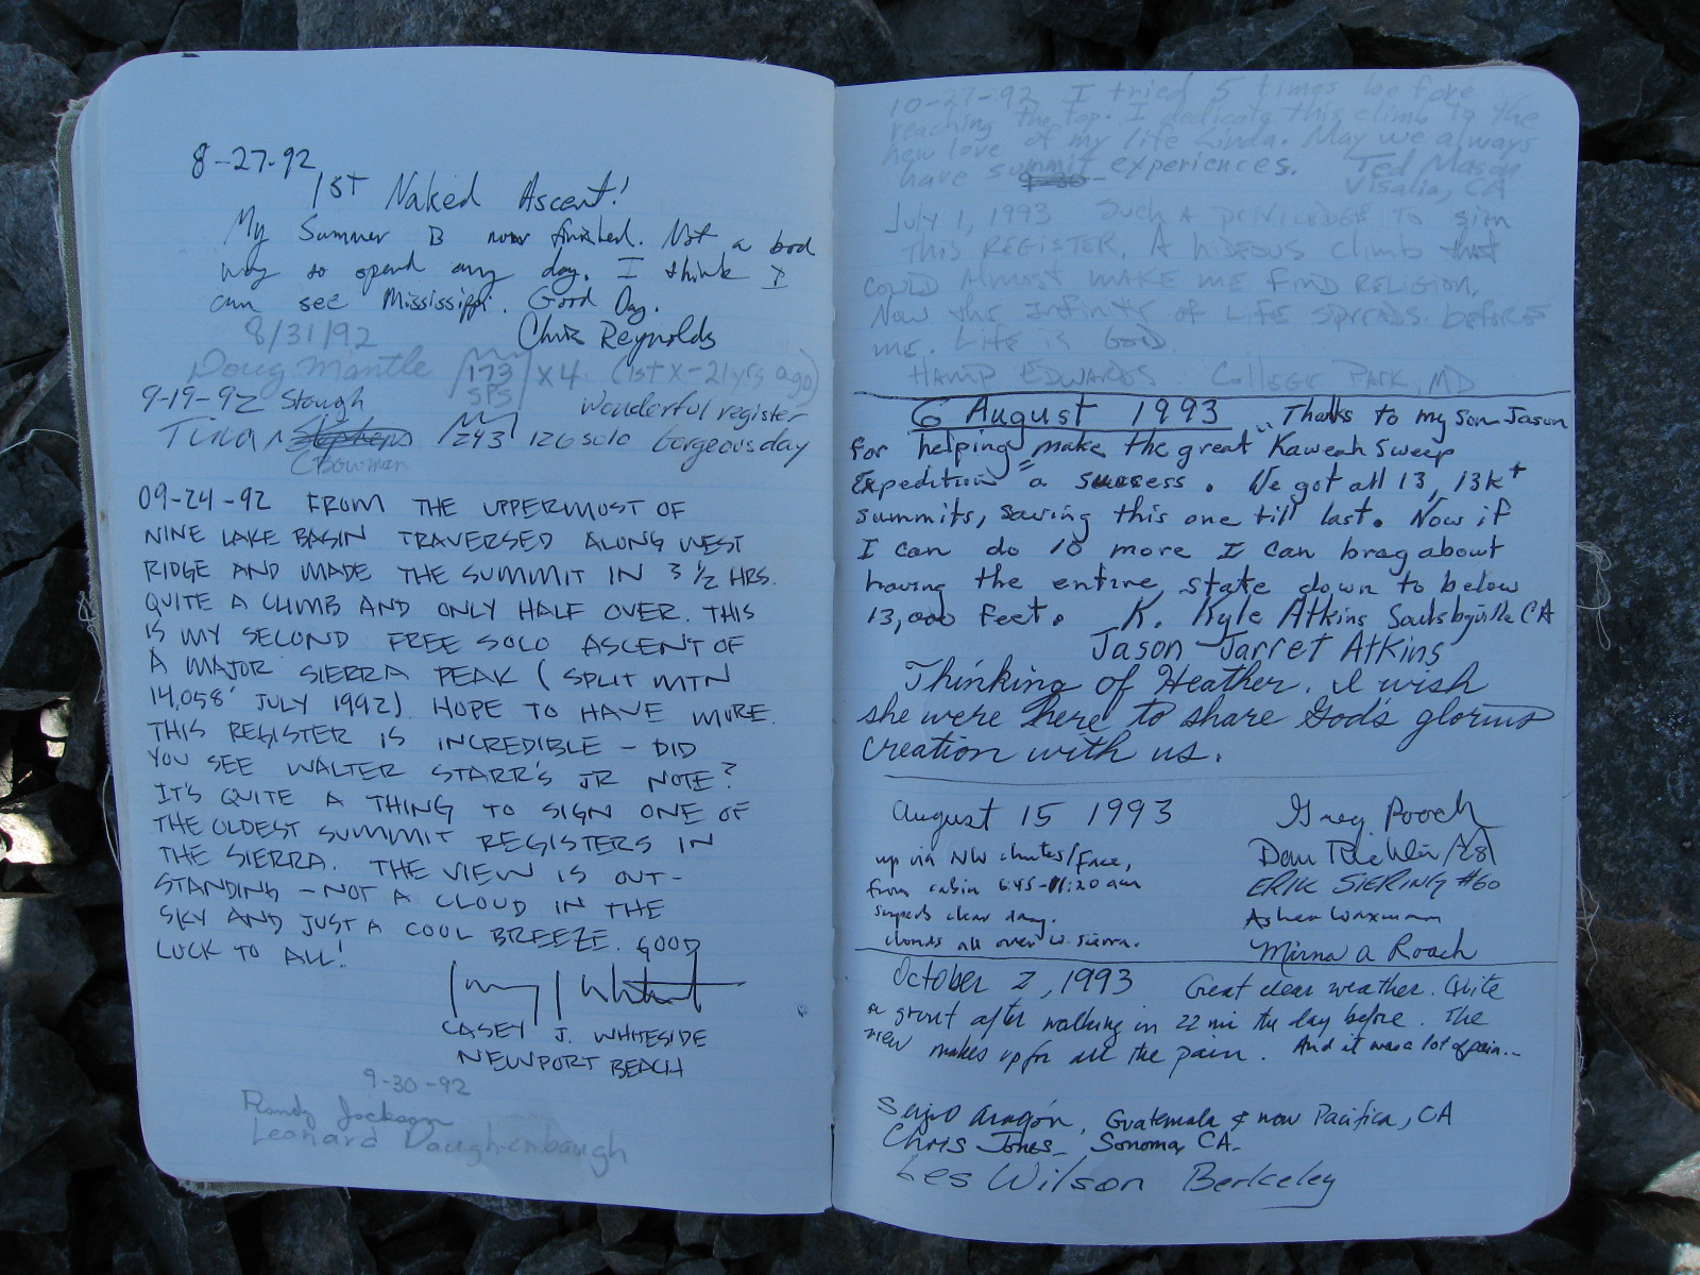 8-27-92
1ST Naked Ascent!
My Summer is now finished. Not a bad
way to spend any day. I think I
can see Mississippi. Good Day.
8/31/92 Chris Reynolds
Doug Mantle 173 SPS x4 (1st x-21yrs ago)
9-19-92 Stough wonderful register
Tina Bowman 243 126 solo Gorgeous day
09-24-92 FROM THE UPPERMOST OF
NINE LAKE BASIN TRAVERSED ALONG WEST
RIDGE AND MADE THE SUMMIT IN 3 1/2 HRS.
QUITE A CLIMB AND ONLY HALF OVER. THIS
IS MY SECOND FREE SOLO ASCENT OF
A MAJOR SIERRA PEAK (SPLIT MTN
14,058' JULY 1992). HOPE TO HAVE MORE.
THIS REGISTER IS INCREDIBLE - DID
YOU SEE WALTER STARR'S JR NOTE?
IT'S QUITE A THING TO SIGN ONE OF
THE OLDEST SUMMIT REGISTERS IN
THE SIERRA. THE VIEW IS OUT-
STANDING - NOT A CLOUD IN THE
SKY AND JUST A COOL BREEZE. GOOD
LUCK TO ALL!
CASEY J. WHITESIDE
NEWPORT BEACH
9-30-92
Randy Jackson
Leonard Daughenbaugh
10-27-92 I tried 5 times before
reaching the top. I dedicate this climb to the
new love of my life Linda. May we always
have summit experiences. Ted Mason
Visalia, CA
July 1, 1993 Such A privilege to sign
THIS REGISTER. A HIDEOUS CLIMB that
COULD Almost MAKE ME FIND RELIGION.
Now the Infinity of LIFE SPREADS before
me. LIFE is GOOD
HAMP EDWARDS. College Park, MD
6 August 1993 Thanks to my son Jason
for helping "make the great Kaweah Sweep
Expedition" a success. We got all 13, 13k+
summits, saving this one till last. Now if
I can do 10 more I can brag about
having the entire state down to below
13,000 feet. K. Kyle Atkins Soulsbyville CA
Jason Jarret Atkins
Thinking of Heather. I wish
she were here to share God's glorious
creation with us.
August 15 1993 Greg Roach
up via NW chutes/face, Dan
from cabin 6:45-11:20 am ERIK SIERING #60
superb clear day. Asher Waxman
clouds all over W. Sierra. Mirna A Roach
October 2, 1993 Great clear weather. Quite
a grunt after walking in 22 mi the day before. The
view makes up for all the pain. And it was a lot of pain...
Sergio Aragón, Guatemala & now Pacifica, CA
Chris Jones - Sonoma, CA.
Les Wilson Berkeley